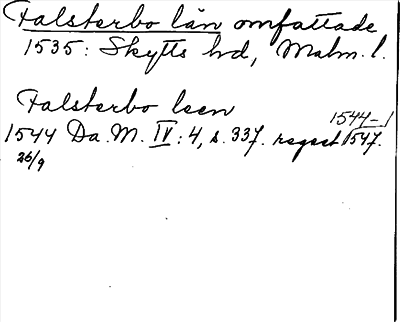 Falsterbo län omfattade
1535: Skytts hd, Malm. l.
Falsterbo leen
1544-
1544 Da. M. IV: 4, s. 337. regest 1547.
26/9